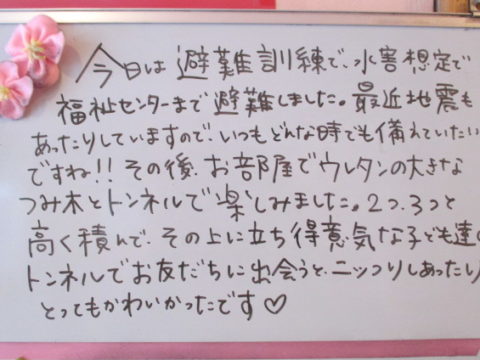 今日は避難訓練で、水害想定で
福祉センターまで避難しました。最近地震も
あったりしていますので、いつもどんな時でも備えていたい
ですね!!その後、お部屋でウレタンの大きな
つみ木とトンネルで楽しみました。2つ、3つと
高く積んで、その上に立ち得意気な子ども達
トンネルでお友だちに出会うと、ニッコリしあったり
とってもかわいかったです♡